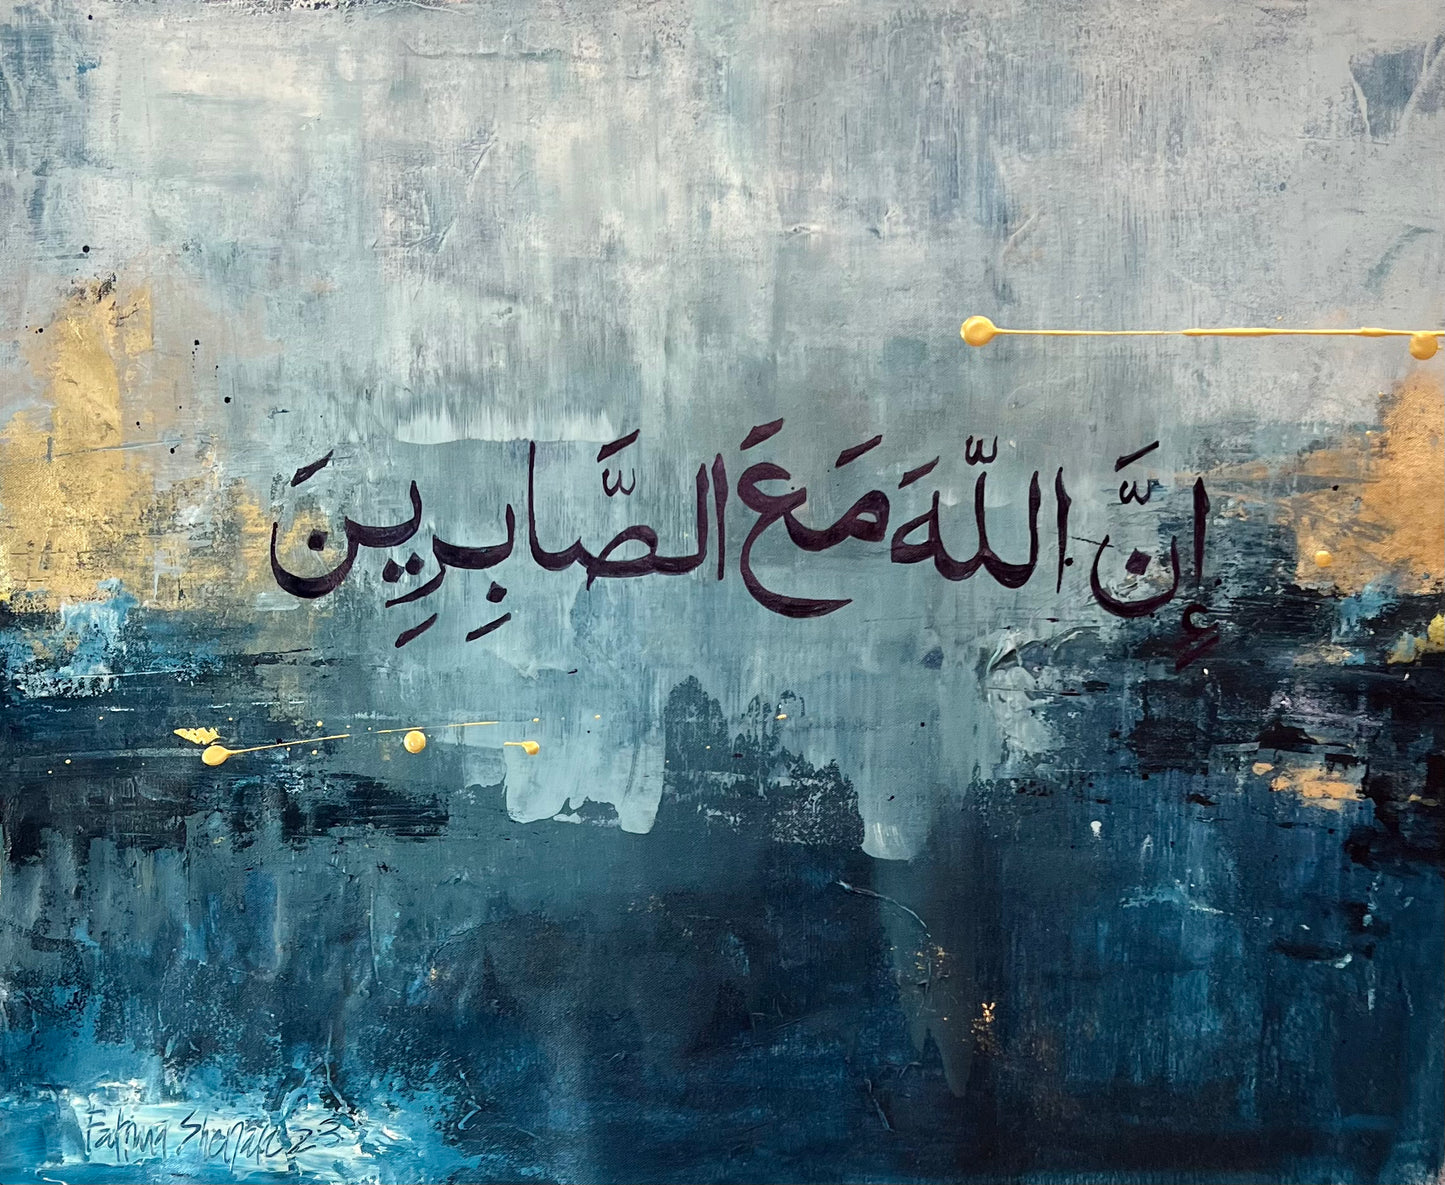 إِنَّ اللَّهَ مَعَ الصَّابِرِينَ
Fatima 23